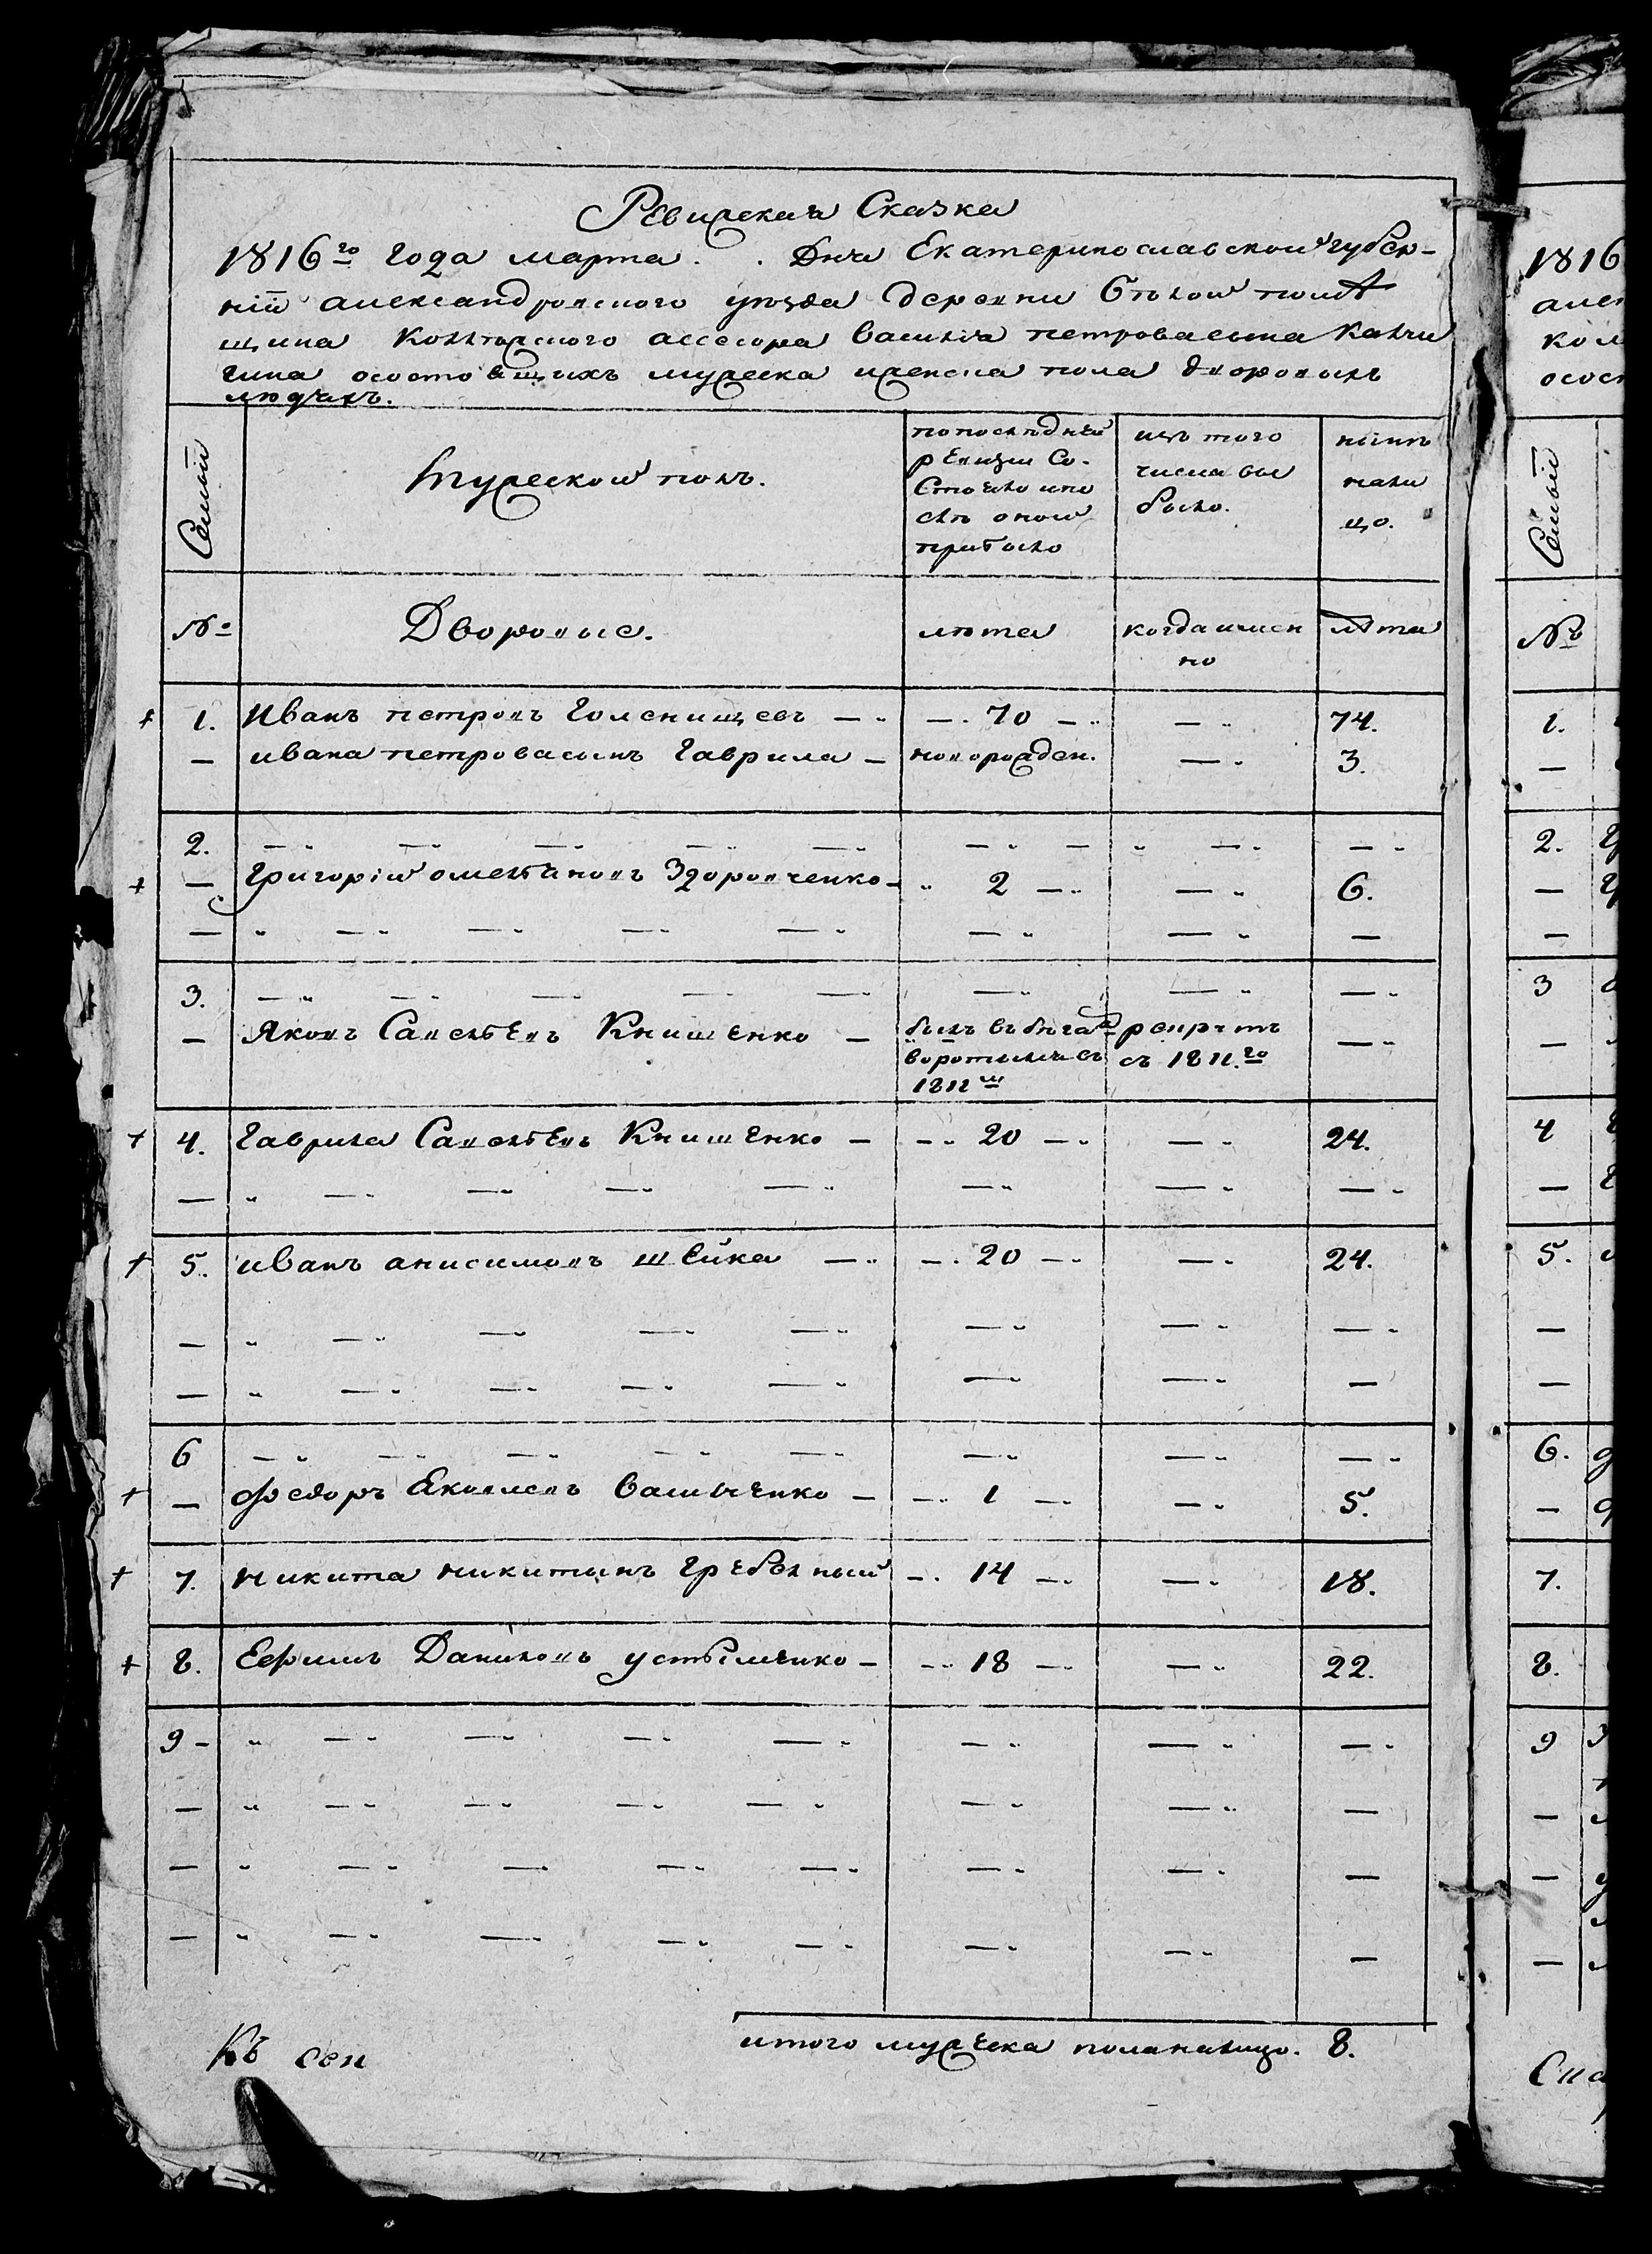 Ревижская Сказка
1816го года марта . . Дня Екатеринославской губер-
нïи александровского уѣзда деревни Бѣлой помѣ
щика Коллежского ассесора василья петрова сына
осостоящихъ мужеска иженска пола дворовыхъ
людяхъ.
Семьи
Мужеской полъ.
попослѣдней
ревизïи Со-
стояло ипо
слѣ оной
прибыло
изъ того
числа вы
было.
нынѣ
нали
цо.
Семьи
№
Дворовые.
лѣта
когда имен
но
лѣта
№
1. Иванъ петровъ Голенищевъ — 70 — — 74.
— ивана петрова сынъ Гаврила — новорожден. — 3.
2. — — — — — — — — —
— Григорïй омельяновъ Здоровченко — 2 — — 6.
— — — — — — — —
3. — — — — — — — —
— Яковъ Савельевъ Книшенко —
былъ въ бѣгах
воротился въ
1811м
съ 1811.го
—
4. Гаврила Савельевъ Книшенко — 20 — — 24.
— — — — — — — —
5. иванъ анисимовъ шейка — 20 — — 24.
— — — — — — — —
— — — — — — — —
6 — — — — — — — —
— Федоръ Якимовъ — 1 — — 5.
7. никита никитинъ Гребѣнный — 14 — — 18.
8. Ефимъ Даниловъ устименко — 18 — — 22.
9 — — — — — — — —
— — — — — — — —
— — — — — — — —
— — — — — — — —
итого мужеска пола налицо. 8.
Къ сей
1816
1.
2.
3
4
5.
6.
7.
8.
9